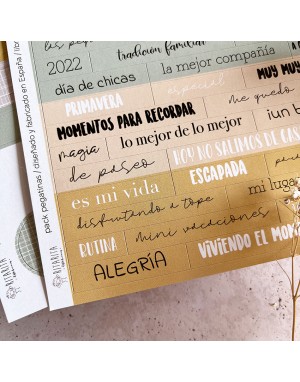 tradición familiar
2022
la mejor compañía
día de chicas
especial
MUY MUY
PRIMAVERA
me quedo
MOMENTOS PARA RECORDAR
¡un b
magia
lo mejor de lo mejor
HOY NO SALIMOS DE CAS
de paseo
ESCAPADA
es mi vida
mi luga
disfrutando a tope
RUTINA
mini vacaciones
VIVIENDO EL MOM
ALEGRÍA
pack pegatinas / diseñado y fabricado en España / lib